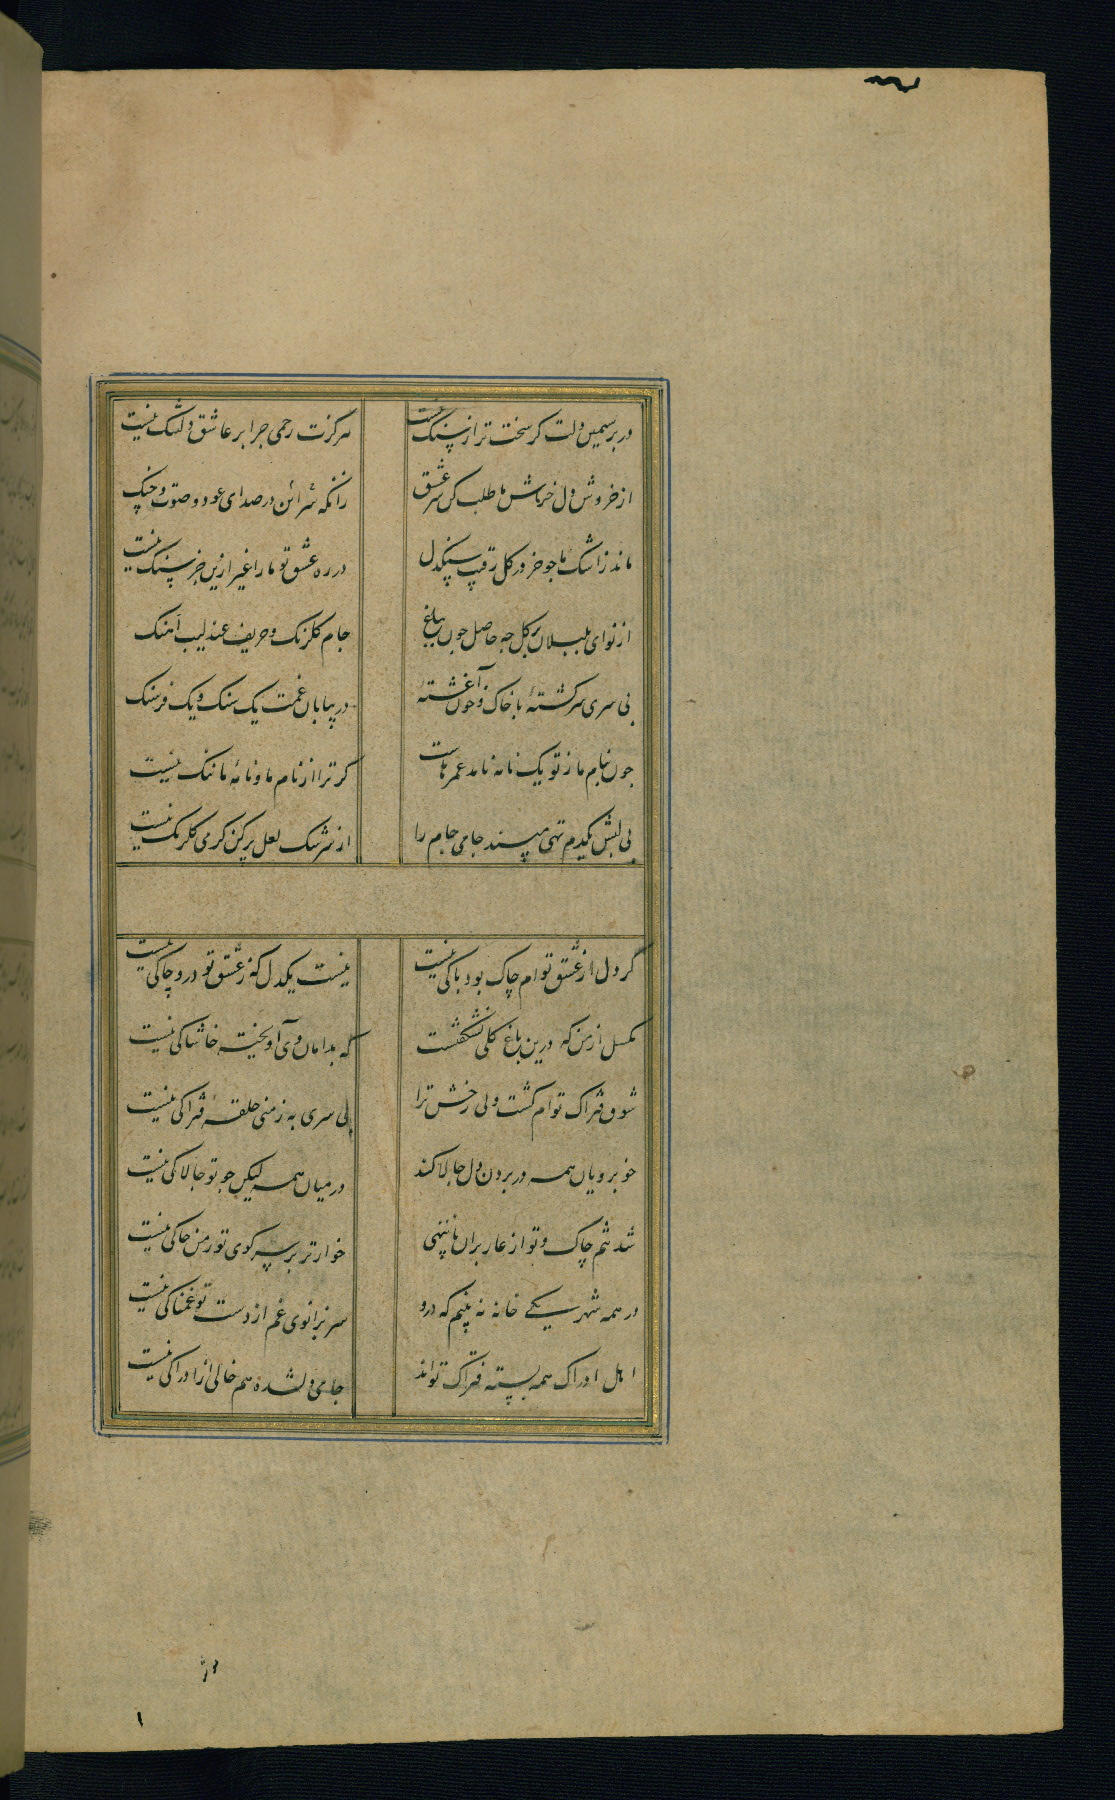 در بر سیمین دلت کر سخت تر از سنک نیست
هرکزت رحمی جرا بر عاشق دلتنک نیست
از خروش دل خراش ما طلب کن سر عشق
زانکه سر این در صدای عود و صوت چنک نیست
ماند ز اشک ما جو خر در کل رقیب سنکدل
در ره عشق تو ما را غیر ازین خرسنک نیست
از نوای بلبلان بر کل جه حاصل جون بباغ
جام کلرنک و حریف عندلیب آهنک
بی سری سرکشتهٔ با خاک و خون آغشتهٔ
در بیابان غمت یک سنک و یک فرسنک
جون بنام ما ز تو یک نامه نامد عمرهاست
کر ترا از نام ما و نامهٔ ما ننک نیست
بی لبش یکدم تهی مپسند جامی جام را
از سرشک لعل پر کن کر می کلرنک نیست
گر دل از عشق توام چاک بود باکی نیست
نیست یکدل که ز عشق تو درو چاکی نیست
مکسل از من که درین باغ کلی نشکفتست
که بدامان وی آویخته خاشاکی نیست
شوق فتراک توام کشت ولی رخش ترا
بی سری به ز منی حلقهٔ فتراکی نیست
خوبرویان همه در بردن دل جالاکند
در میان همه لیکن جو تو جالاکی نیست
شد تنم خاک و تو از عار بران پا ننهی
خوارتر بر سر کوی تو ز من خاکی نیست
در همه شهر یکی خانه نه بینم که درو
سر بزانوی غم از دست تو غمناکی نیست
اهل ادراک همه بسته فتراک تواند
جامی دلشده هم خالی از ادراکی نیست